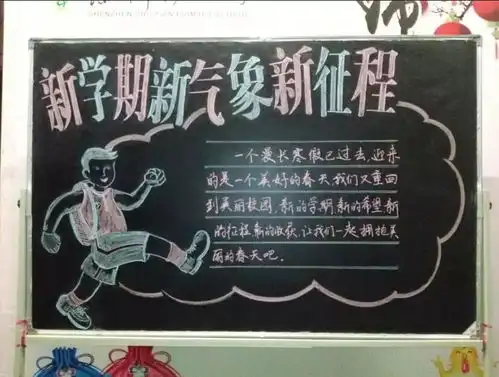 新学期新气象新征程
一个漫长寒假已过去,迎来
的是一个美好的春天,我们又重回
到美丽校园,新的学期,新的希望,新
的征程,新的收获,让我们一起拥抱美
丽的春天吧。